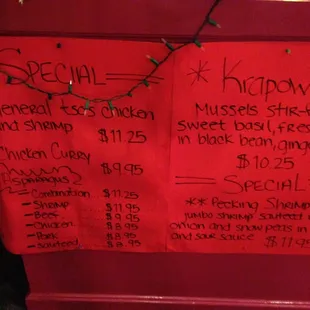 Special
General tso's chicken
and shrimp
$11.25
Chicken Curry
$9.95
Combination $11.25
-Shrimp $11.95
-Beef $9.95
-Chicken $8.95
-Pork $8.95
-Sauteed $8.95
* Krapow
Mussels stir-f
sweet basil, fres
in black bean, ginge
$10.25
= Special
** Pecking Shrimp
jumbo shrimp sauteed
onion and snow peas in
and sour sauce $11.95